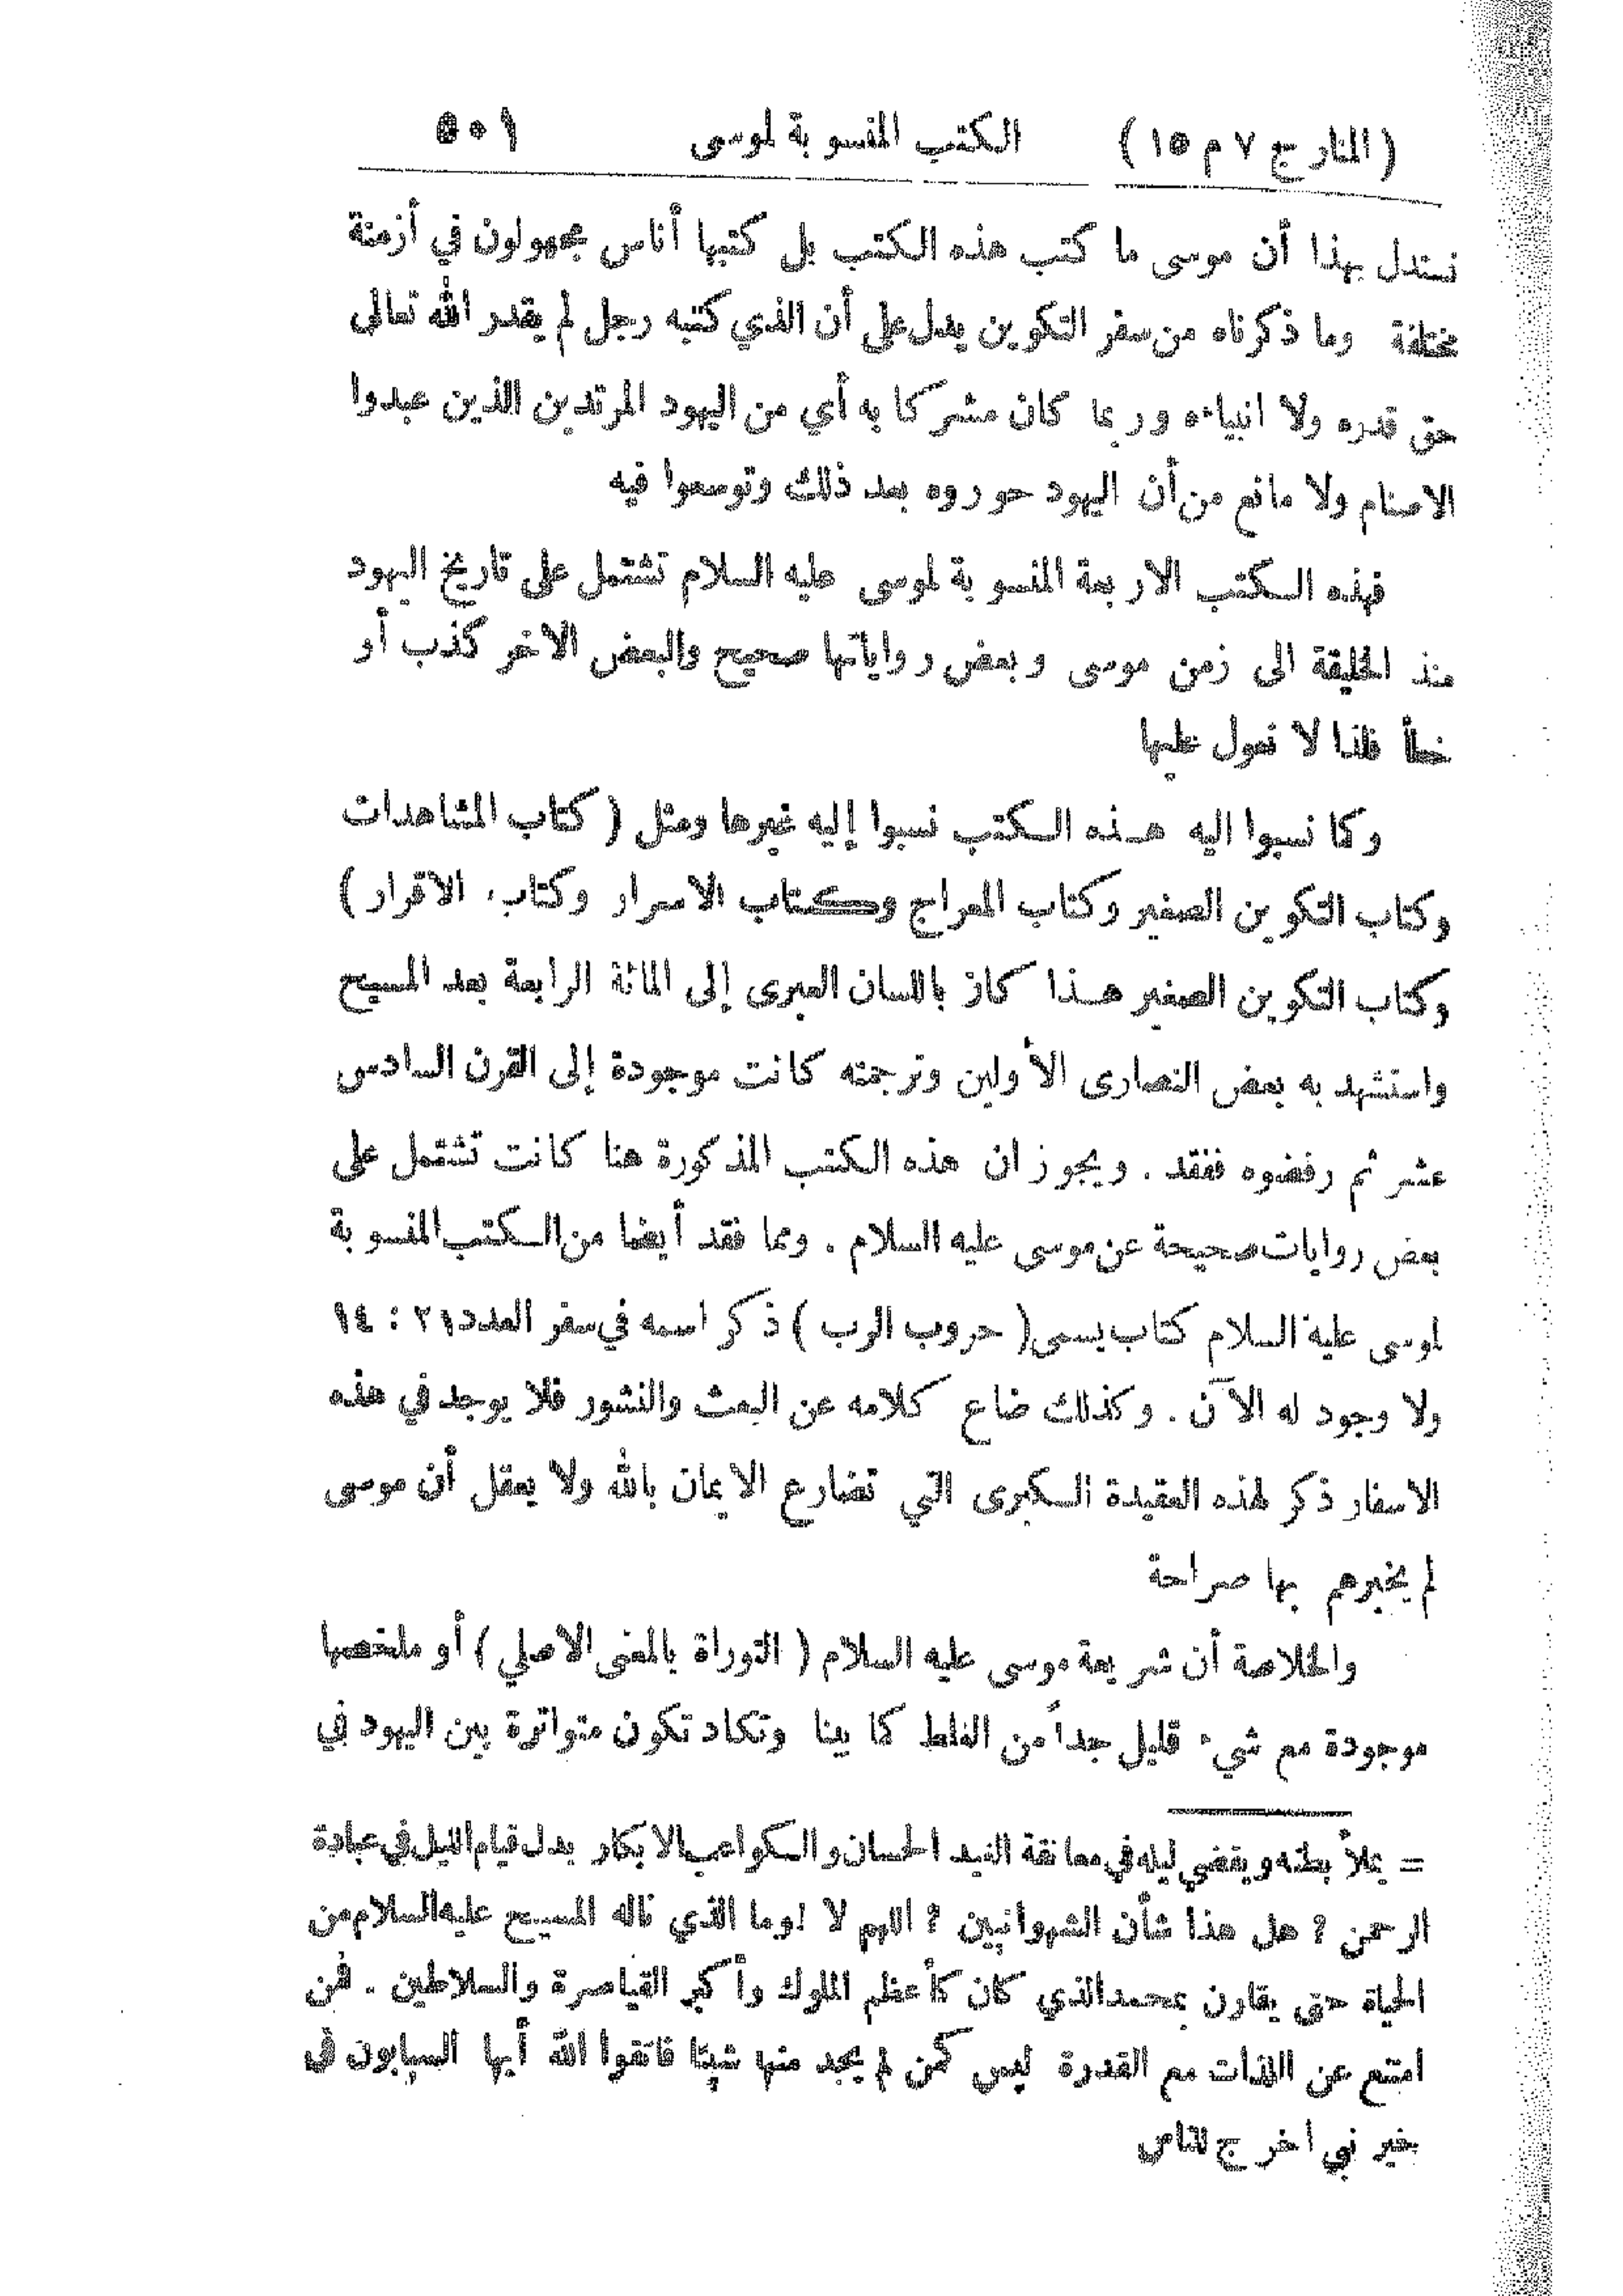 (المنار ج ٧ م ١٥) الكتب المنسوبة لموسى ٥٠١
نستدل بهذا أن موسى ما كتب هذه الكتب بل كتبها أناس مجهولون في أزمنة
مختلفة وما ذكرناه من سفر التكوين يدل على أن الذي كتبه رجل لم يقدر الله تعالى
حق قدره ولا انبياءه وربما كان مشركا به أي من اليهود المرتدين الذين عبدوا
الاصنام ولا مانع من أن اليهود حوروه بعد ذلك وتوسعوا فيه
فهذه الكتب الاربعة المنسوبة لموسى عليه السلام تشتمل على تاريخ اليهود
منذ الخليقة الى زمن موسى وبعض رواياتها صحيح والبعض الآخر كذب أو
خطأ فلذا لا نعول عليها
وكما نسبوا اليه هذه الكتب نسبوا إليه غيرها ومثل (كتاب المشاهدات
وكتاب التكوين الصغير وكتاب المعراج وكتاب الاسرار وكتاب الاقرار)
وكتاب التكوين الصغير هذا كان باللسان العبرى إلى المائة الرابعة بعد المسيح
واستشهد به بعض النصارى الأولين وترجمته كانت موجودة إلى القرن السادس
عشر ثم رفضوه ففقد . ويجوز ان هذه الكتب المذكورة هنا كانت تشتمل على
بعض روايات صحيحة عن موسى عليه السلام . ومما فقد أيضا من الكتب المنسوبة
لموسى عليه السلام كتاب يسمى (حروب الرب) ذكر اسمه في سفر العدد ٢١ : ١٤
ولا وجود له الآن . وكذلك ضاع كلامه عن البعث والنشور فلا يوجد في هذه
الاسفار ذكر لهذه العقيدة الكبرى التي تضارع الايمان بالله ولا يعقل أن موسى
لم يخبرهم بها صراحة
والخلاصة أن شريعة موسى عليه السلام (التوراة بالمعنى الاصلي) أو ملخصها
موجودة مع شيء قليل جداً من الغلط كما بينا وتكاد تكون متواترة بين اليهود في
= يملأ بطنه ويقضي ليله في معانقة الغيد الحسان والكواعب الابكار بدل قيام الليل في عبادة
الرحمن ؟ هل هذا شأن الشهوانيين ؟ اللهم لا ! وما الذي ناله المسيح عليه السلام من
الحياة حتى يقارن بمحمد الذي كان كأعظم الملوك وأكبر القياصرة والسلاطين . فمن
امتنع عن اللذات مع القدرة ليس كمن لم يجد منها شيئا فاتقوا الله أيها السبابون في
خير نبي اخرج للناس